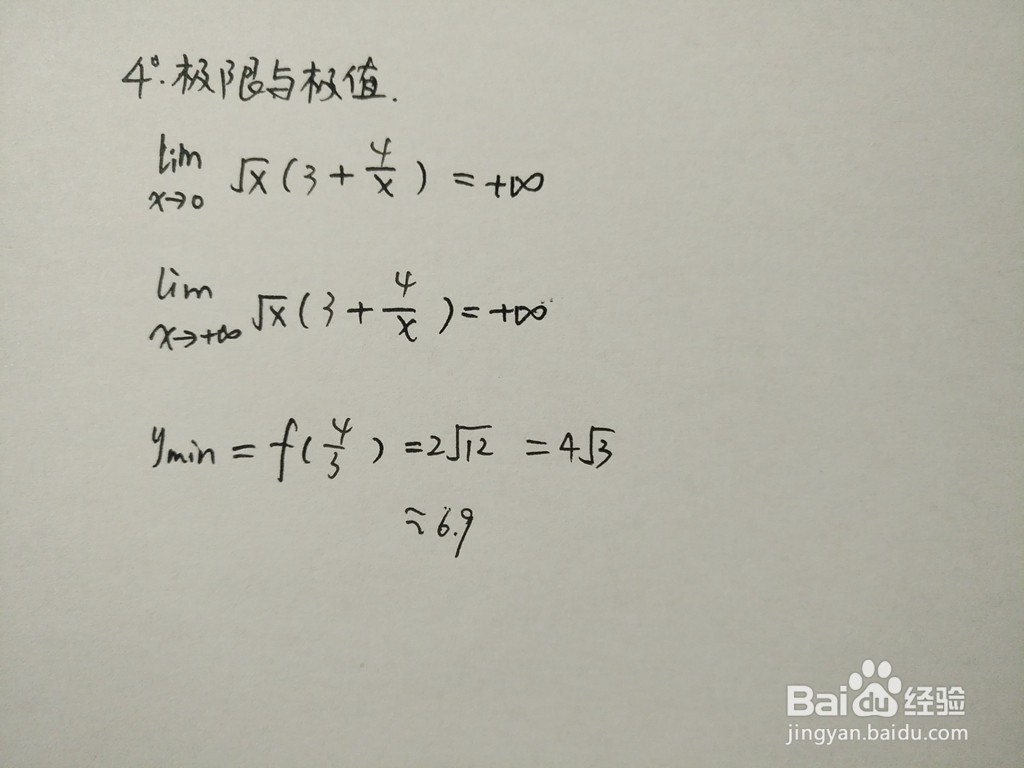 4°. 极限与极值.
lim x→0 √x (3 + 4/x) = +∞
lim x→+∞ √x (3 + 4/x) = +∞
ymin = f(4/3) = 2√12 = 4√3
≈ 6.9
Baidu 经验
jingyan.baidu.com